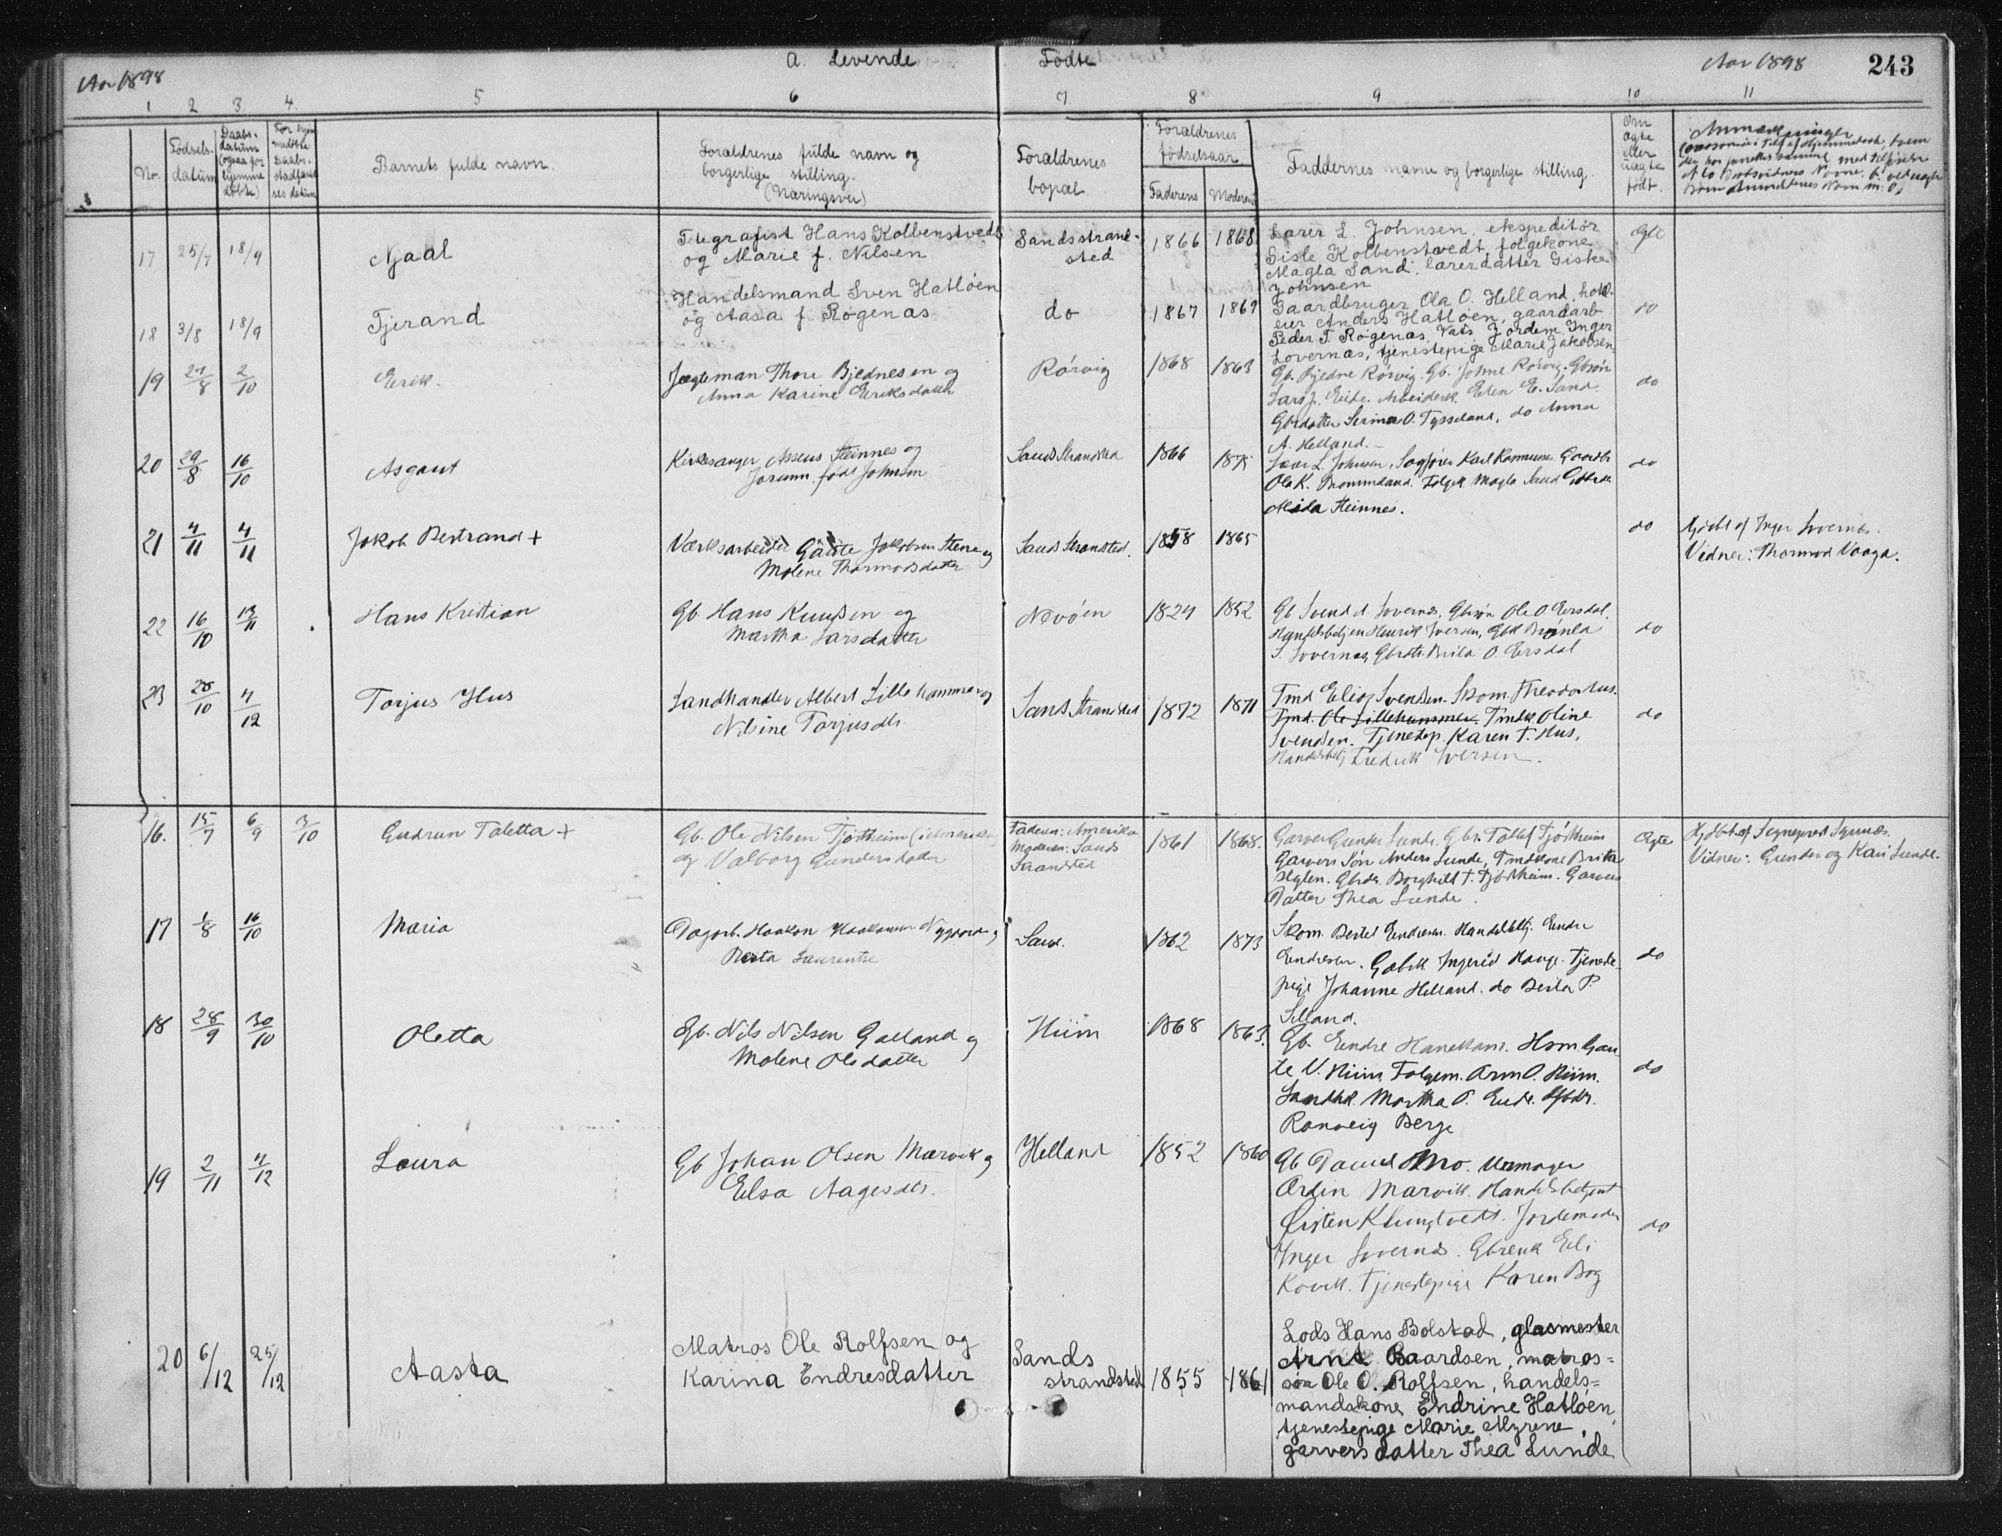 Aar 1898
a. Levende Födte
Aar 1898 243
1 2 3. 4. 5 6 7 8 9 10 11
No.
Födsels-
datum
Daabs-
datum
(ogsaa for
hjemme
döbte)
For hjem
medöbte
Daabs-
stadfæst
ses datum
Barnets fulde navn.
Forældrenes fulde navn og
borgerlige stilling.
(Næringsvei)
Forældrenes
bopæl.
Forældrenes
födselsaar
Faderens Moderens
Faddernes navne og borgerlige stilling.
Om
ægte
eller
uægte
födt.
Anmærkninger
17 25/7 18/9 Njaal
Telegrafist Hans Kolbenstvedt
og Marie f. Nilsen
Sandsstrand-
sted
1866 1868
Lærer L. Johnsen, ekspeditör
Sisle Kolbenstvedt, folgekone
Magla Sand, lærerdatter Giske
Johnsen
Ægte
18 3/8 18/9 Tjerand
Handelsmand Sven Hatlöen
og Aasa f. Rögenæs
do
1867 1869
Gaardbruger Ola O. Helland, hotel-
eier Anders Hatlöen, gaardarb
Peder T. Rögenæs, Vats, Jordem. Inger
Lovernæs, tjenestepige Marie Jakobsen
do
19 27/8 2/10 Erik.
Jægteman Thore Bjednesen og
Anna Karine Eriksdatter
Rörvig
1868 1863
Gb. Bjedne Rörvig. Gb. Johne Rörvig. Gbsön
Lars J. Eide. Arbeidsk. Elen E. Sand.
Gbrdatter Serina O. Tysseland, do Anna
A. Helland.
do
20 29/8 16/10 Asgaut
Kirkesanger Asseus Steinnes og
Jorunn født Johnsen
Sands Strandsted
1866 1875
Lærer L. Johnsen, Sagfører Karl Rasmussen. Gaardbr.
Ole K. Brommeland. Folgek. Magla Sand
Alida Steinnes.
do
21 4/11 4/11 Jakob Bertrand +
Værksarbeider Gaute Jakobsen Stene og
Molene Thormodsdatter
Sands Strandsted.
1858 1865
do
Hjdbt. af Inger Lovernæs.
Vidner: Thormod Vaaga.
22 16/10 13/11 Hans Kristian
Gb. Hans Knudsen og
Martha Larsdatter
Nevöen
1824 1852
Gb. Svend d. Lovernæs, Gbrsøn Ole O. Eersdal.
Handelsbetjen Henrik Iversen, Gbk Brønla
S. Lovernæs, Gbrdtr. Brita O. Eersdal
do
23 28/10 4/12 Torjus Hus
Landhandler Albert Lillehammer og
Nilsine Torjusdtr.
Sands Strandsted
1872 1871
Tmd Elias Svendsen. Skom. Theodor Hus.
Tmd. Ole Lillehammer. Tmdk Oline
Svendsen. Tjenestep. Karen T. Hus,
Handelsbetj Fredrik Iversen.
do
16. 15/7 6/9 3/10 Gudrun Taletta +
Gb. Ole Nilsen Tjøstheim (i Amerika)
og Valborg Gundersdatter
Faderen: Amerika
Moderen: Sands
Strandsted
1861 1868.
Garver Gunder Lunde. Gbr. Tollef Tjöstheim
Garvers Sön Anders Lunde, Tmdskone Brita
Hylen. Gbrdr. Borghild T. Tjöstheim. Garvers
Datter Thea Lunde.
Ægte
Vidner: Gunder og Kari Lunde.
17 1/8 16/10 Maria
Dagarb. Haakon Haakonsen Nygaard og
Berta Laurentse
Sand.
1862 1873
Skom. Bertel Endresen. Handelsbetj. Endre
Endresen. Gabrk Ingerid Hauge. Tjeneste-
pige Johanne Helland. do Berta P.
Lilland.
do
18 28/9 30/10 Oletta
Gb. Nils Nilsen Galland og
Molene Olsdatter
Hiim
1868 1863.
Gb. Endre Hanekam. Hsm. Gau-
te V. Hiim. Folgem. Arm O. Hiim.
Landhdk. Martha P. Eide. Gbdr.
Ranveig Berge
do
19 2/11 4/12 Laura
Gb Johan Olsen Marvik og
Elsa Aagesdtr.
Helland
1852 1860
Gb David Mo. Urmager
Ordin Marvik. Handelsbetjent
Kisten Klungtvedt. Jordemoder
Inger Lovernæs. Gbrenk Eli
Kovik. Tjenestepige Karen Bog
do
20 6/12 25/12 Aasta
Matros Ole Rolfsen og
Karina Endresdatter
Sands
strandsted
1855 1861
Lods Hans Bolstad, glasmester
Arnt Baardsen, matros-
søn Ole O. Rolfsen, handels-
mandskone Endrine Hatlöen,
tjenestepige Marie Myrene,
garvers datter Thea Lunde